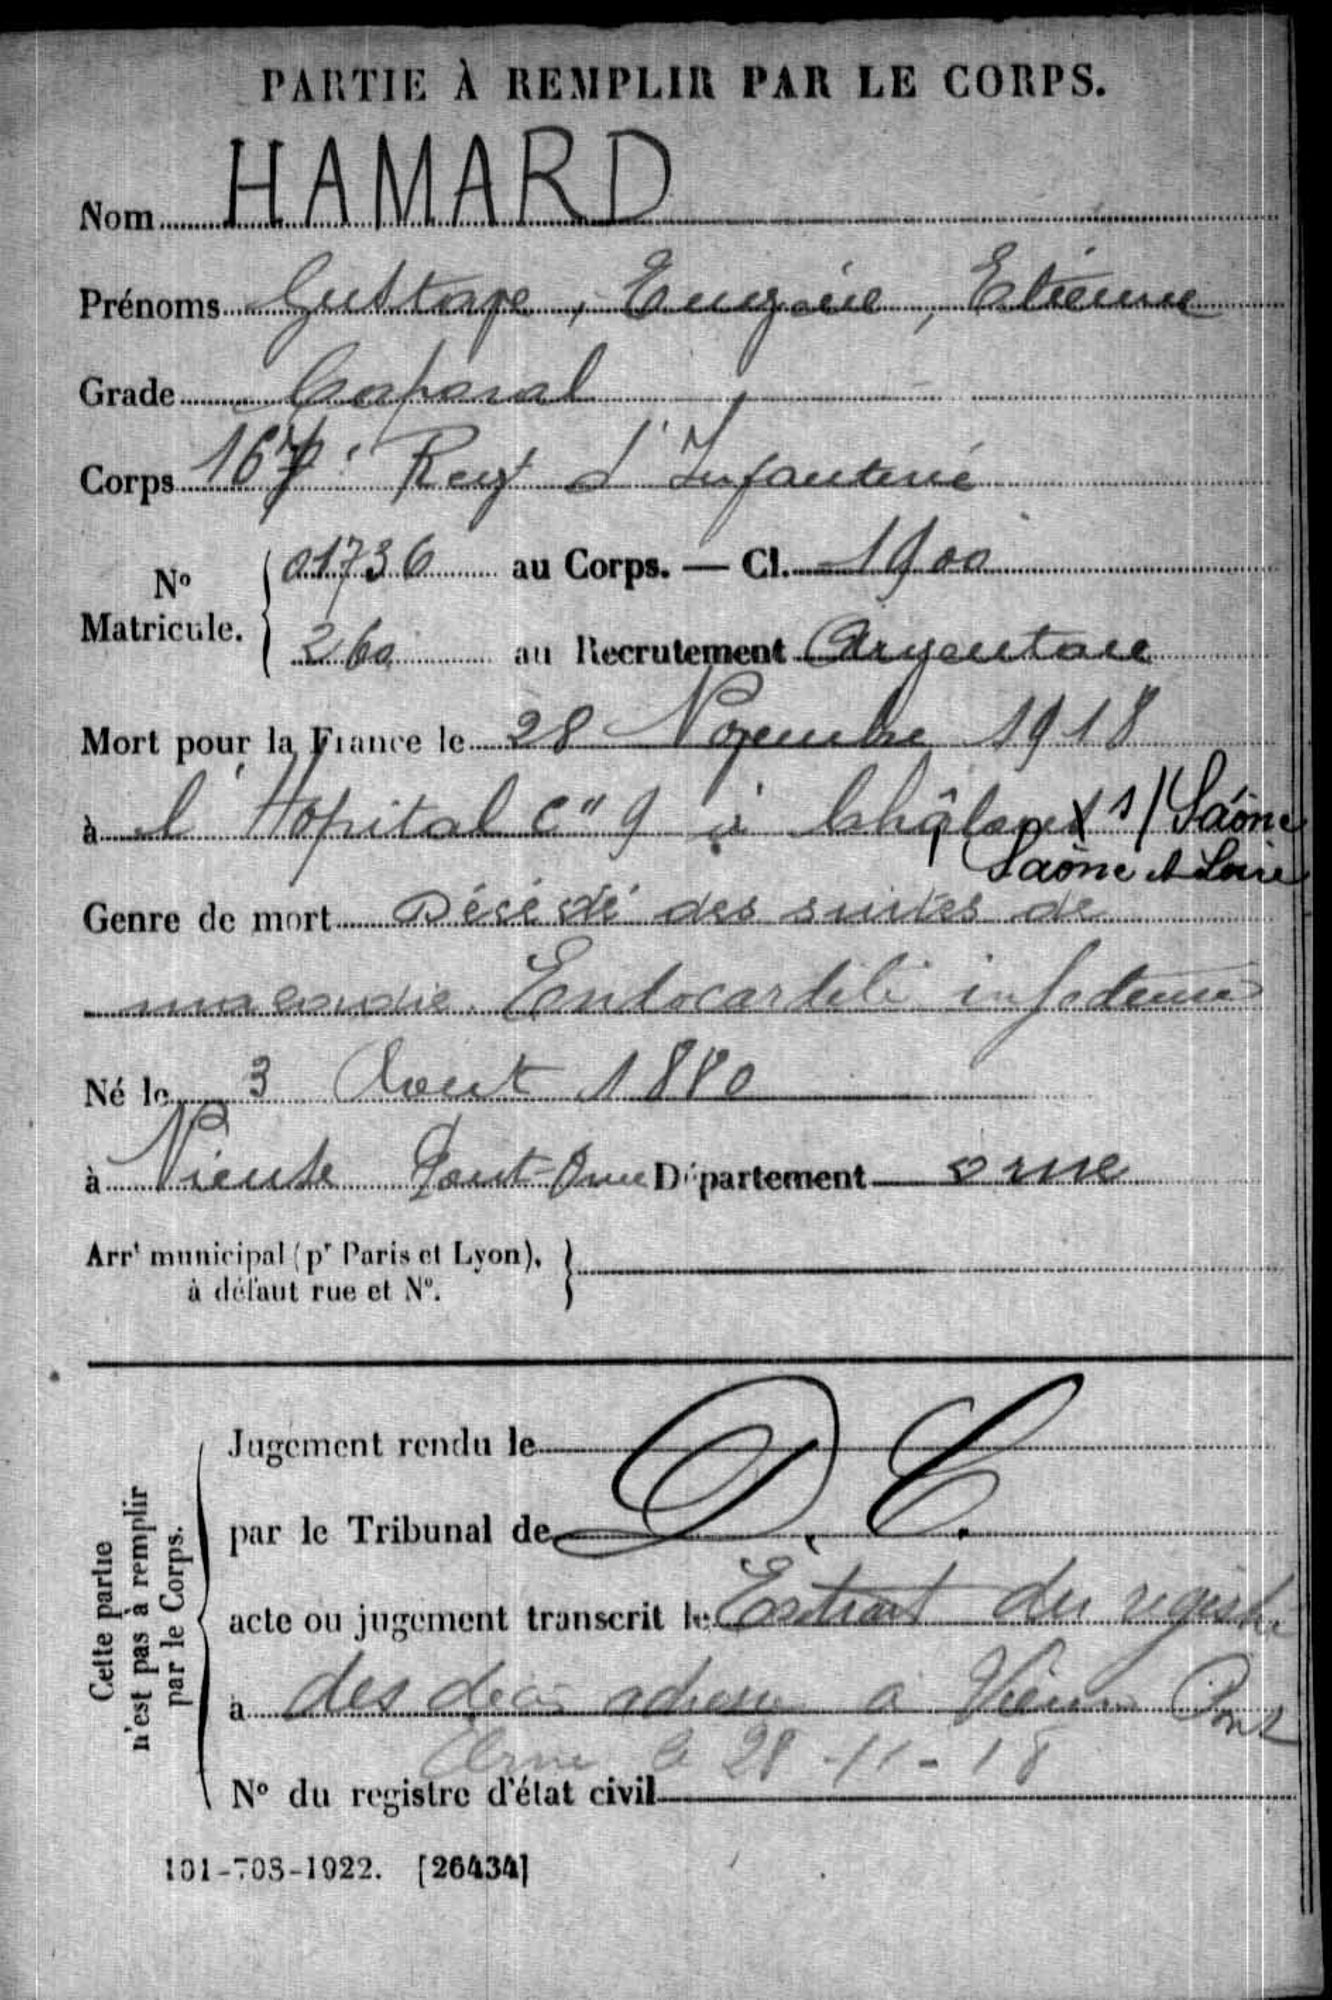 PARTIE À REMPLIR PAR LE CORPS.
Nom HAMARD
Prénoms Gustave, Eugène, Etienne
Grade Caporal
Corps 167e Regt d'Infanterie
No Matricule. 01736 au Corps. — Cl. 1900
260 au Recrutement Argentan
Mort pour la France le 28 Novembre 1918
à l'Hopital Cre 9 à Châlon s/ Saône
Saône et Loire
Genre de mort Décédé des suites de
Endocardite infectieuse
Né le 3 Aout 1880
à Vieux Pont-Orne Département orne
Arrt municipal (pr Paris et Lyon),
à défaut rue et No.
Cette partie
n'est pas à remplir
par le Corps.
Jugement rendu le
par le Tribunal de D. C.
acte ou jugement transcrit le Extrait du registre
a des décès adressé à Vieux Pont
Orne le 28-11-18
No du registre d'état civil
101-708-1922. [26434]